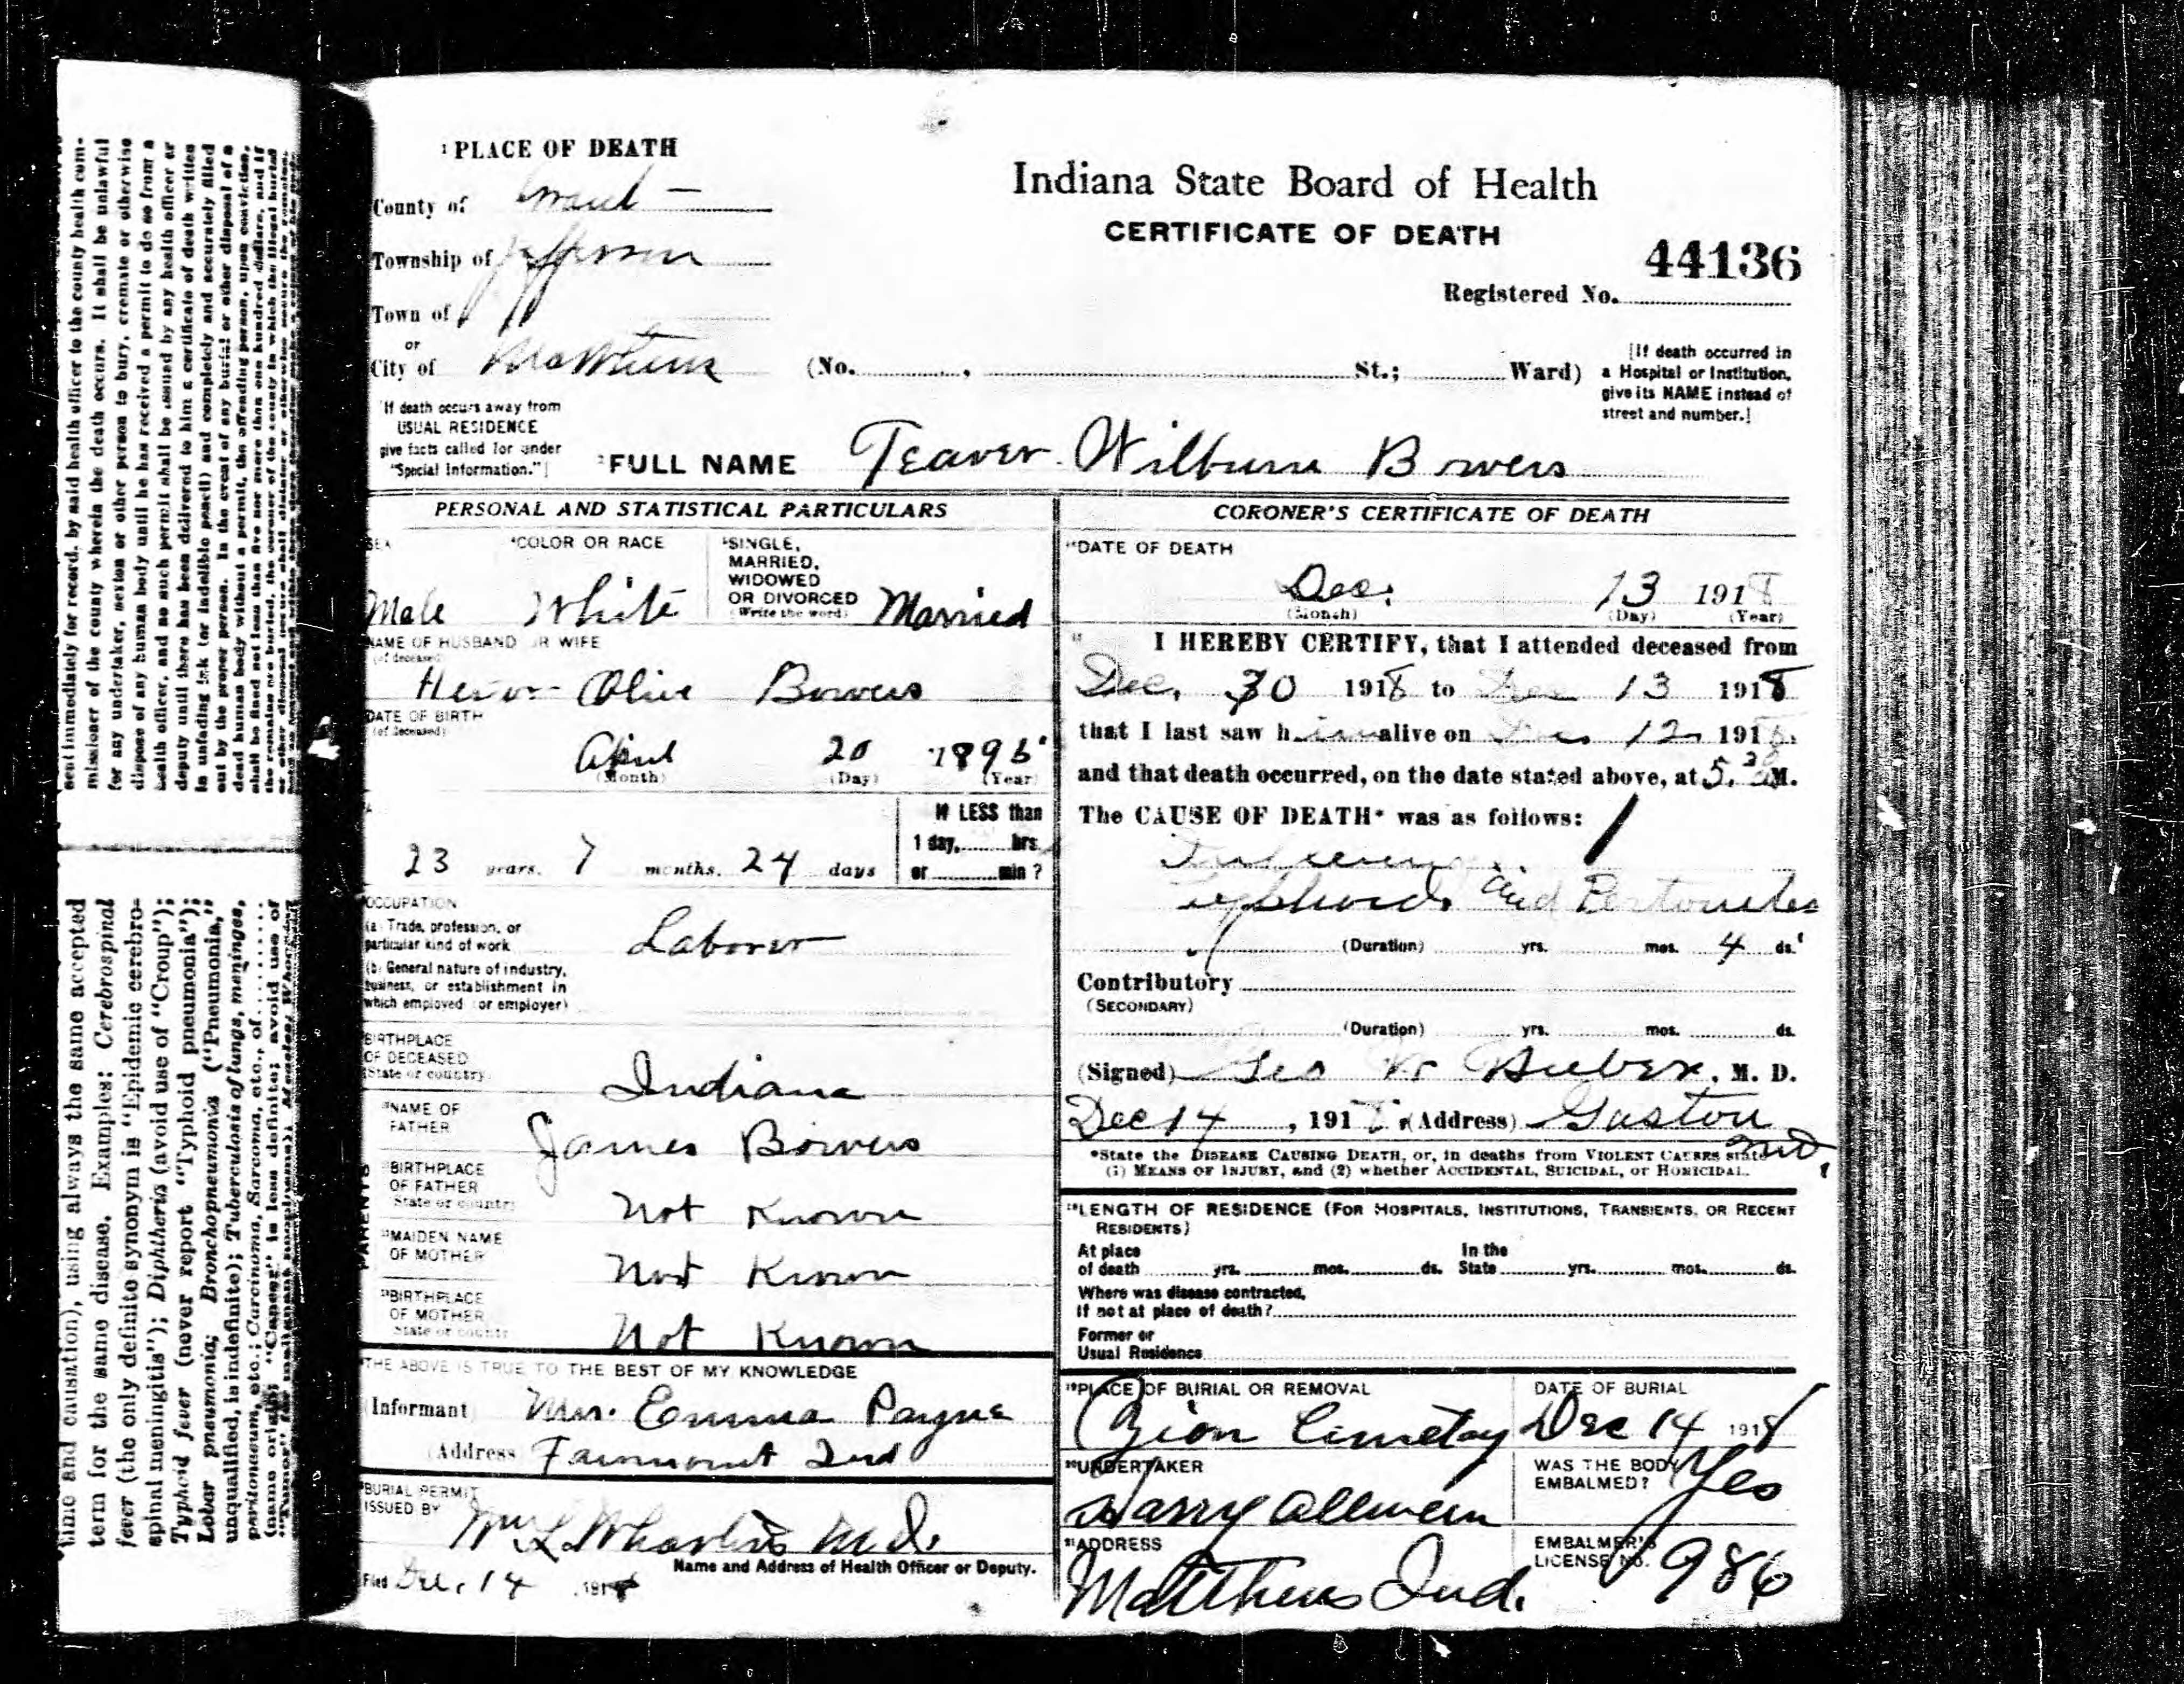 sent immediately for record, by said health officer to the county health com-
missioner of the county wherein the death occurs. It shall be unlawful
for any undertaker, sexton or other person to bury, cremate or otherwise
dispose of any human body until he has received a permit to do so from a
health officer, and no such permit shall be issued by any health officer or
deputy until there has been delivered to him a certificate of death written
in unfading ink (or indelible pencil) and completely and accurately filled
out by the proper person. In the event of any burial or other disposal of a
dead human body without a permit, the offending person, upon conviction,
shall be fined not less than five nor more than one hundred dollars, and if
time and causation), using always the same accepted
term for the same disease. Examples: Cerebrospinal
fever (the only definite synonym is "Epidemic cerebro-
spinal meningitis"); Diphtheria (avoid use of "Croup");
Typhoid fever (never report "Typhoid pneumonia");
Lobar pneumonia; Bronchopneumonia ("Pneumonia,"
unqualified, is indefinite); Tuberculosis of lungs, meninges,
peritoneum, etc.; Carcinoma, Sarcoma, etc., of
(name origin; "Cancer" is less definite; avoid use of
1 PLACE OF DEATH
County of Grant
Township of Jefferson
Town of
or
City of Matthews (No. , St.; Ward)
[If death occurred in
a Hospital or Institution,
give its NAME instead of
street and number.]
Indiana State Board of Health
CERTIFICATE OF DEATH
44136
Registered No.
If death occurs away from
USUAL RESIDENCE
give facts called for under
"Special Information."]
2 FULL NAME Teaver Wilburn Bowers
PERSONAL AND STATISTICAL PARTICULARS
SEX Male
4 COLOR OR RACE White
5 SINGLE,
MARRIED,
WIDOWED
OR DIVORCED
(Write the word) Married
NAME OF HUSBAND OR WIFE
(of deceased)
Olive Bowers
DATE OF BIRTH
(of deceased)
April 20 1895
(Month) (Day) (Year)
23 years, 7 months, 24 days
If LESS than
1 day, hrs.
or min ?
OCCUPATION
(a) Trade, profession, or
particular kind of work Laborer
(b) General nature of industry,
business, or establishment in
which employed (or employer)
BIRTHPLACE
OF DECEASED
(State or country) Indiana
PARENTS
NAME OF
FATHER James Bowers
BIRTHPLACE
OF FATHER
State or country Not Known
MAIDEN NAME
OF MOTHER Not Known
BIRTHPLACE
OF MOTHER
State or country Not Known
THE ABOVE IS TRUE TO THE BEST OF MY KNOWLEDGE
(Informant) Mrs. Emma Payne
(Address Fairmount Ind
BURIAL PERMIT
ISSUED BY
Wm L Wharton M.D.
Name and Address of Health Officer or Deputy.
Filed Dec. 14 1918
CORONER'S CERTIFICATE OF DEATH
DATE OF DEATH
Dec. 13 1918
(Month) (Day) (Year)
I HEREBY CERTIFY, that I attended deceased from
Dec. 30 1918 to Dec 13 1918
that I last saw him alive on Dec 12 1918
and that death occurred, on the date stated above, at 5.30 AM.
The CAUSE OF DEATH* was as follows:
Influenza.
Typhoid and Peritonites
(Duration) yrs. mos. 4 ds.
Contributory
(SECONDARY)
(Duration) yrs. mos. ds.
(Signed) Geo Huber, M. D.
Dec 14, 1918 (Address) Gaston
Ind.
*State the DISEASE CAUSING DEATH, or, in deaths from VIOLENT CAUSES state
(1) MEANS OF INJURY, and (2) whether ACCIDENTAL, SUICIDAL, or HOMICIDAL.
18 LENGTH OF RESIDENCE (FOR HOSPITALS, INSTITUTIONS, TRANSIENTS, OR RECENT
RESIDENTS)
At place
of death yrs. mos. ds.
In the
State yrs. mos. ds.
Where was disease contracted,
If not at place of death?
Former or
Usual Residence
19 PLACE OF BURIAL OR REMOVAL
Zion Cemetay
DATE OF BURIAL
Dec 14 1918
20 UNDERTAKER
Harry Allwein
WAS THE BODY
EMBALMED? Yes
21 ADDRESS
Matthews Ind.
EMBALMER'S
LICENSE NO. 986